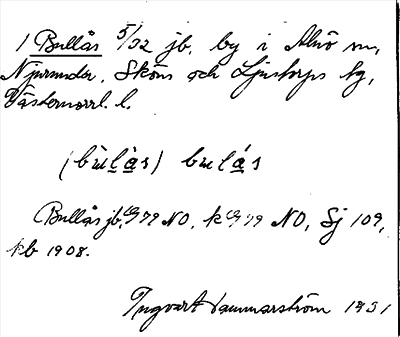 1 Bullås 5/32 jb. by i Alnö sn,
Njurunda, Sköns och Ljustorps tg,
Västernorrl. l.
(bùlàs) bulás
Bullås jb. 79 NO, k 79 NO, Sj 109,
kb 1908.
Ingvart Hammarström 1931